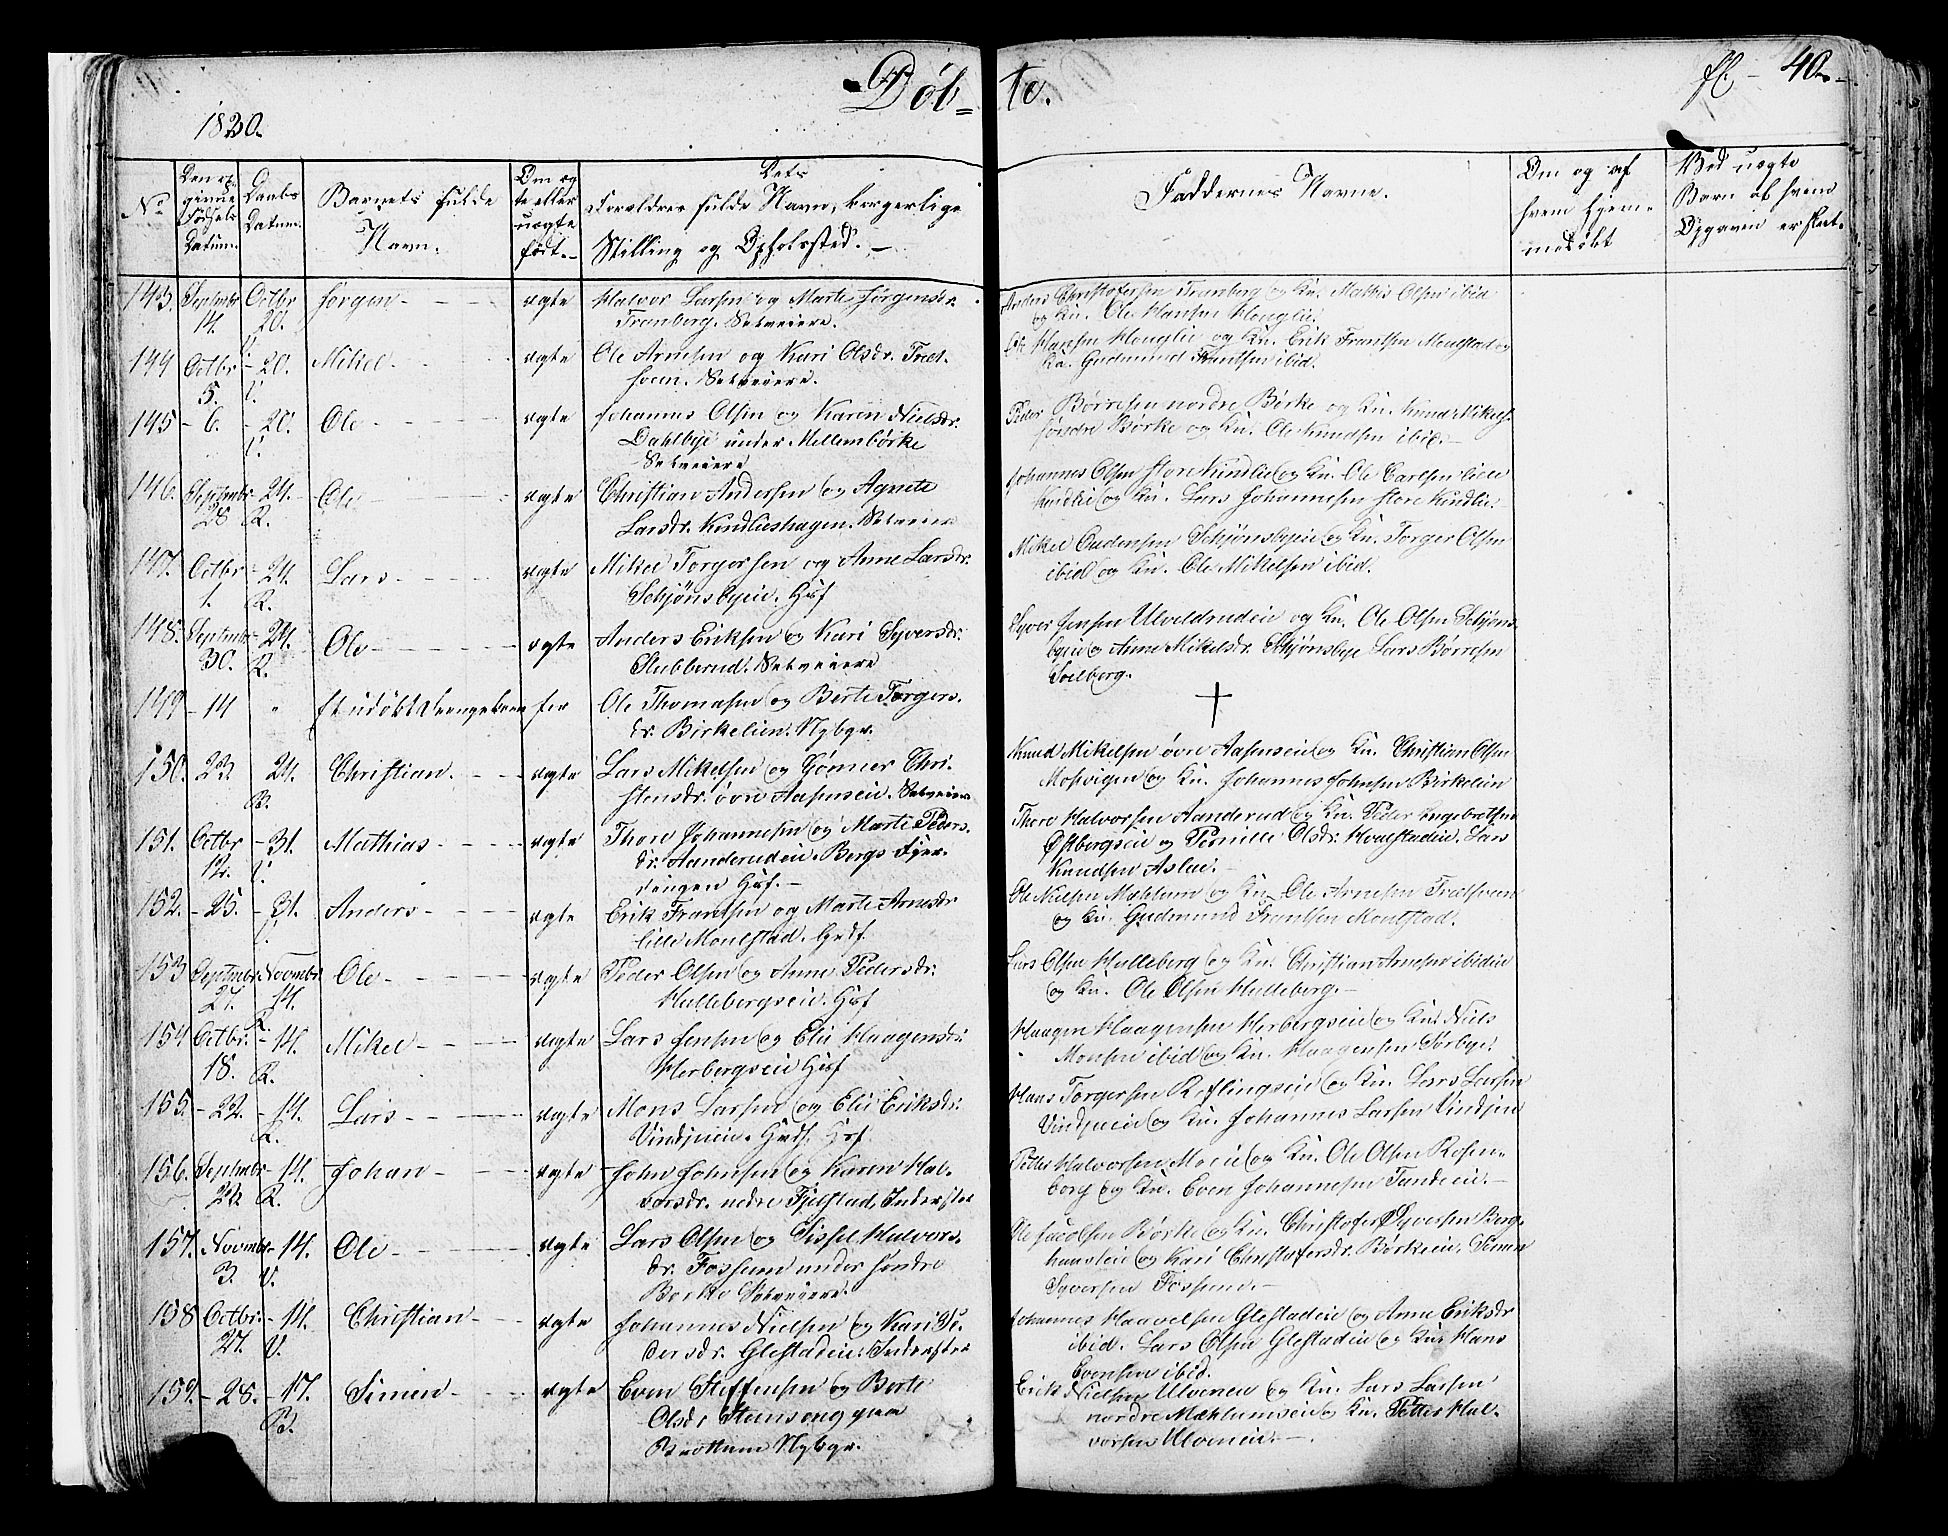 Döb= te. fl. - 40.
1820.
No
Den op-
givne
Födsels
Datum.
Daabs
Datum.
Barnets fulde
Navn.
Om æg-
te eller
uægte
født.
Dets
Forældres fulde Navn, borgerlige
Stilling og Opholssted.
Faddernes Navne.
Om og af
hvem hjem-
medøbt
Ved uægte
Barn af hvem
Opgaven er skeet.
143. Septembr 14. Octbr 20. Jørgen ægte Halvor Larsen og Marte Jørgensdr.
Tronberg. Selveiere.
Anders Christofersen Tronberg og Kn. Mathis Olsen ibid
og Kn. Ole Hansen
144 Octbr 5. - 20. Mikel ægte Ole Arnesen og Kari Olsdr. Træt-
sveen. Selveiere.
Ole Hansen og Kn. Erik Frantsen og
Kn. Gudmund Frantsen ibid.
145 - 6. - 20. Ole ægte Johannes Olsen og Karen Nielsdr.
Dahlbye under Mellembörke
Selveiere
Peder Börresen nordre Börke og Kn. Knud Mikels.
søndre Börke og Kn. Ole Knudsen ibid.
146. Septembr 28 - 24. R. Ole ægte Christian Andersen og Agnete
Larsdr. Kindlieshagen. Selveiere
Johannes Olsen store Kindlie og Kn. Ole Carlsen lille
Kindlie og Kn. Lars Johannesen store Kindlie.
147. Octbr 1. - 24. R. Lars ægte Mikel Torgersen og Anne Larsdr.
Schjönsbyeie. Husf
Mikel Gudensen Schjönsbyeie og Kn. Torger Olsen
ibid og Kn. Ole Mikelsen ibid.
148. Septembr 30. - 24. R. Ole ægte Anders Eriksen og Kari Syversdr.
Stubberud. Selveiere
Syver Jensen Ulveldrudeie og Kn. Ole Olsen Schjöns-
byeie og Anne Mikelsdr. Schjönsbye Lars Börresen
Solberg.
149 - 14 " Et udöbt Drengebarn for Ole Thomasen og Berte Torgers-
dr. Birkelien. Nybgr.
150. - 23. 24. Christian. ægte Lars Mikelsen og Gönner Chri-
stensdr. övre Aasenseie. Selveiere
Knud Mikelsen övre Aasenseie og Kn. Christian Olsen
Mosvigen og Kn. Johannes Johnsen Birkelien
151. Octbr 12. - 31. Mathias ægte Thore Johannesen og Marte Peders-
dr. Aanderudeie. Bergs Fjer-
dingen Husf.
Thore Halvorsen Aanderud og Kn. Peder Ingebretsen
Østbergseie og Pernille Olsdr. Hvalstadeie, Lars
Knudsen Aslae.
152. - 25. - 31. Anders ægte Erik Frantsen og Marte Arnesdr
lille Monlstad. Grdf.
Ole Nielsen Mæhlum og Kn. Ole Arnesen Trætsveen
og Kn. Gudmund Frantsen Monlstad.
153 Septembr 27. Novmbr 14. R. Ole ægte Peder Olsen og Anne Pedersdr.
Hullebergseie. Husf
Lars Olsen Hulleberg og Kn. Christian Arnesen ibideie
og Kn. Ole Olsen Hulleberg.
154 Octbr. 18. - 14. R. Mikel ægte Lars Jensen og Elie Haagensdr.
Herbergseie Husf
Haagen Haagensen Herbergseie og Kn. Niels
Monsen ibid og Kn. Haagensen Sörbye.
155. - 22. - 14. R. Lars ægte Mons Larsen og Elie Eriksdr.
Vindjueie. Husf.
Hans Torgersen Reflingseie og Kn. Lars Larsen
Vindjueie og Kn. Johannes Larsen Vindjueie
156. Septembr 22 - 14. R. Johan ægte John Johnsen og Karen Hal-
vorsdr. nedre Fjelstad, Inderster
Petter Halvorsen Moeie og Kn. Ole Olsen Rosen-
borg og Kn. Even Johannesen Tandeeie.
157. Novmbr 3. - 14. V. Ole ægte Lars Olsen og Sissel Halvors-
dr. Fossum under søndre
Börke Selveiere.
Ole Jacobsen Börke og Kn. Christofer Syversen Berg-
hauseie og Kari Christofersdr. Börkeeie. Simen
Syversen Fossum.
158 Octbr. 27. - 14. V. Christian ægte Johannes Nielsen og Kari Pe-
dersdr. Glestadeie. Inderster
Johannes Haavelsen Glestadeie og Anne Eriksdr
ibid. Lars Olsen Glestadeie og Kn. Hans
Evensen ibid.
159. - 28. - 17. Simen ægte Even Steffensen og Berte
Olsdr Steensengquen
Brøttum Nybgr.
Erik Nielsen Ulveneie og Kn. Lars Larsen
nordre Mæhlumseie og Kn. Petter Hal-
vorsen Ulveneie.